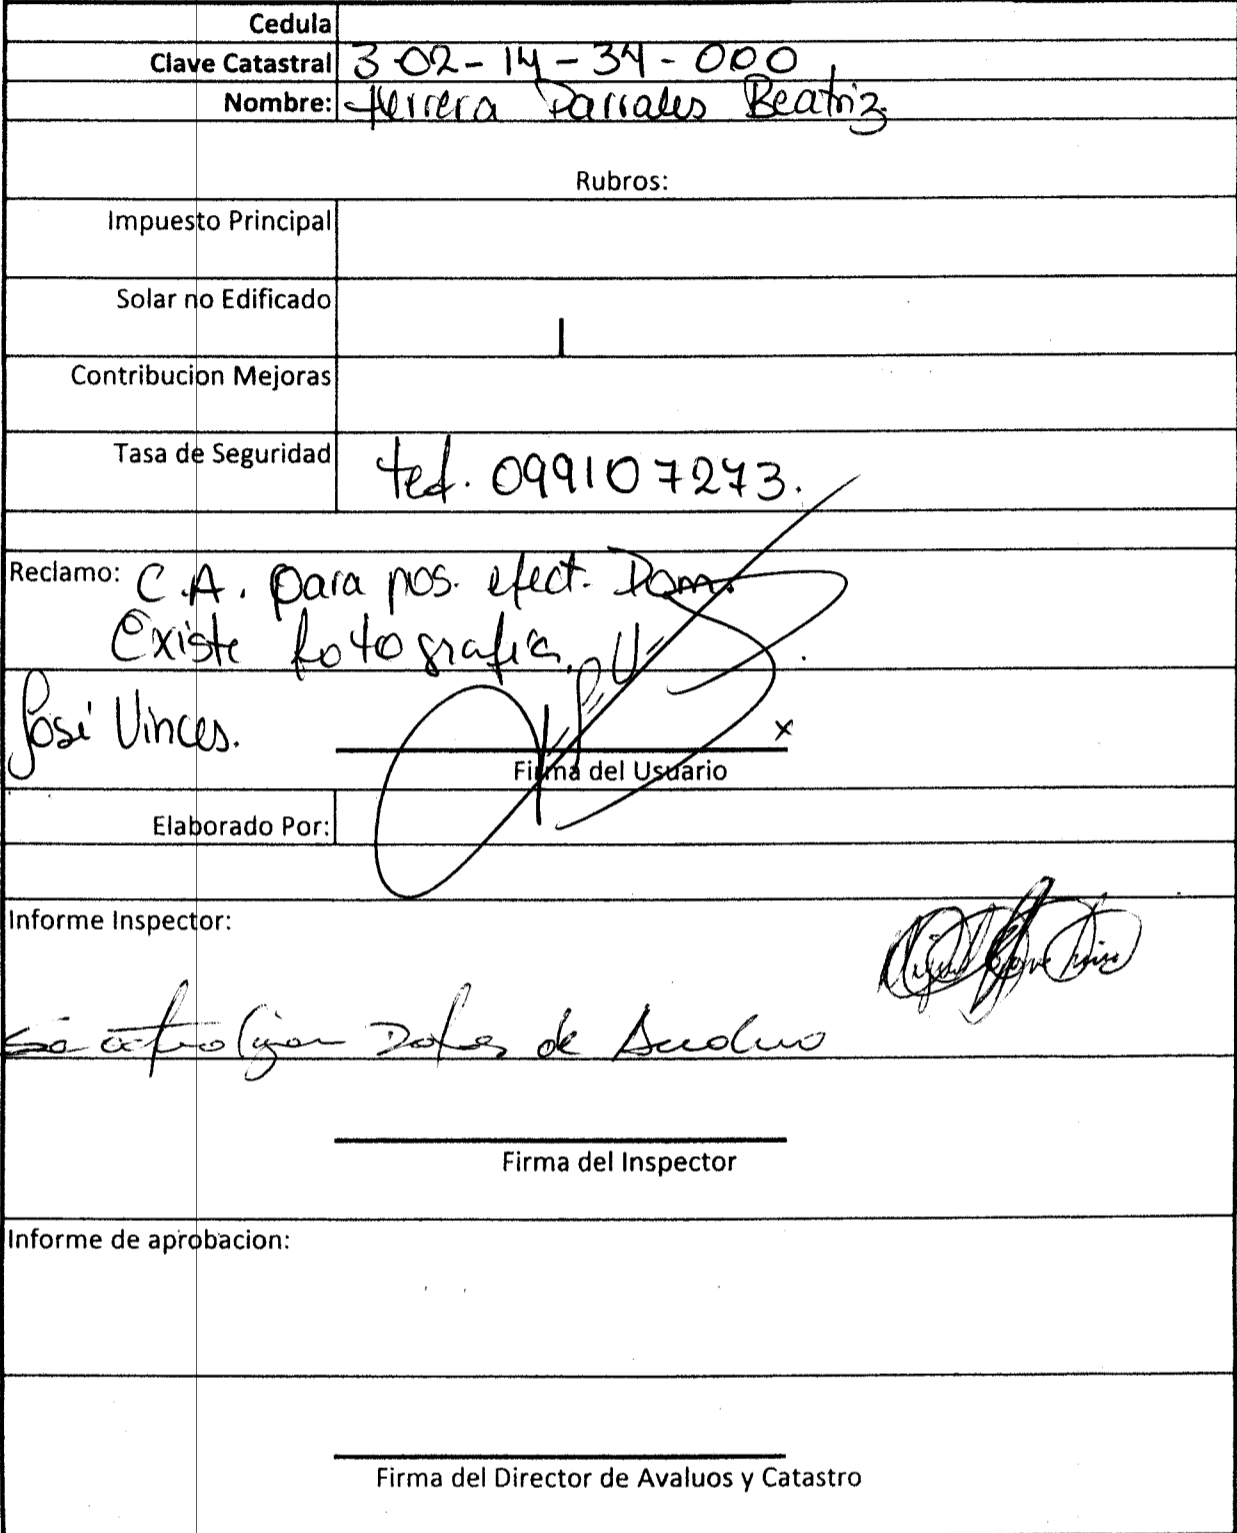 Cedula
Clave Catastral 3-02-14-34-000
Nombre: Herrera Parrales Beatriz
Rubros:
Impuesto Principal
Solar no Edificado
Contribucion Mejoras
Tasa de Seguridad telf. 099107273.
Reclamo: C.A. para pos. efect. Dom.
Existe fotografia.
José Vinces. x
Firma del Usuario
Elaborado Por:
Informe Inspector:
de
Firma del Inspector
Informe de aprobacion:
Firma del Director de Avaluos y Catastro